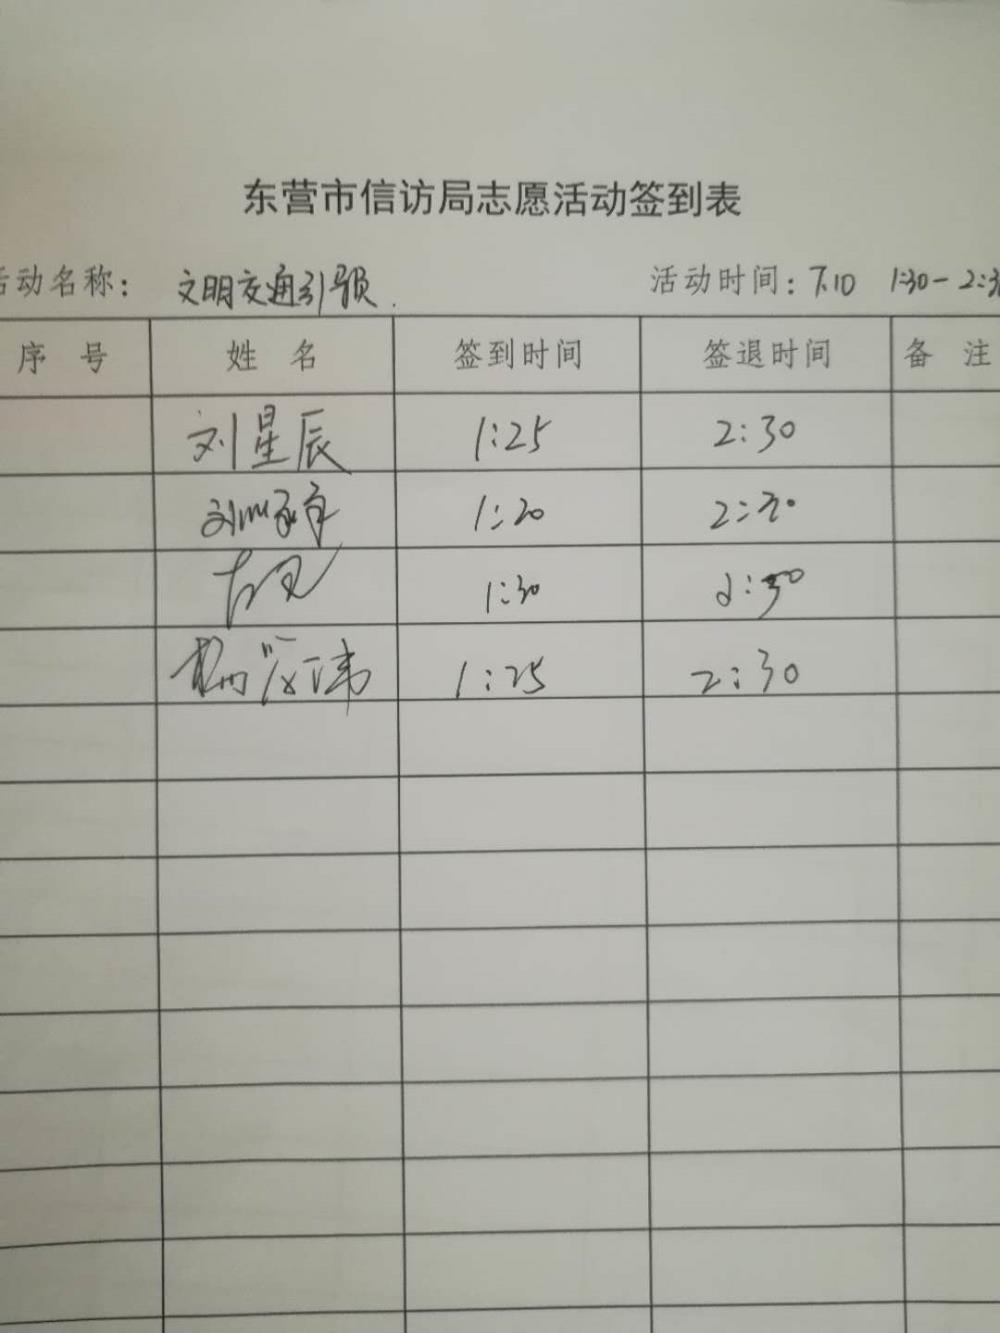 东营市信访局志愿活动签到表
活动名称: 文明交通引领. 活动时间: 7.10 1:30-2:30
序 号 姓 名 签到时间 签退时间 备 注
刘星辰 1:25 2:30
刘 1:20 2:30
1:30 2:30
1:25 2:30